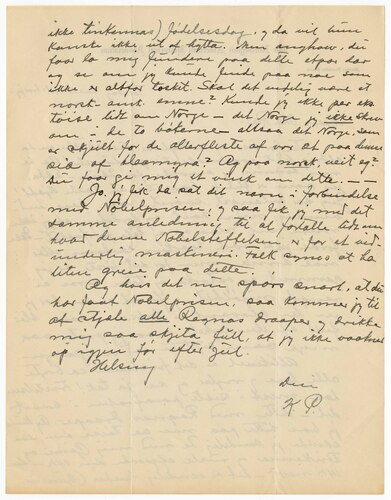 ikke tinkernas) fødselsdag, og da vil hun
kanske ikke ut af hytta. Men anyhow, du
faar la mig fundere paa dette et par dar
og se om jeg kunde finde paa noe som
ikke er altfor toskit. Skal det endelig være et
norsk-amr. emne? Kunde jeg ikke par ex.
tøise lidt om Norge — det Norge jeg ikke skrev
om i de to bøkerne — altsaa det Norge, som
er skjult for de allerfleste af vor æt paa denne
sia af blaamyra? Og paa norsk, veit eg?
Du faar gi mig et vink om dette. —
Jo, jeg fik da sat dit navn i forbindelse
med Nobelprisen, og saa fik jeg med det
samme anledning til at fortælle lidt om
hvad denne Nobelstiftelsen er for et vid-
underlig mastineri. Folk synes at ha
liten greie paa dette.
Og hvis det nu spørs snart, at du
har faat Nobelprisen, saa kommer jeg til
at stjæle alle Ragnas draaper og drikke
mig saa skjita full, at jeg ikke vaakner
op igjen før efter Jul.
Helsing
Din
K. P.